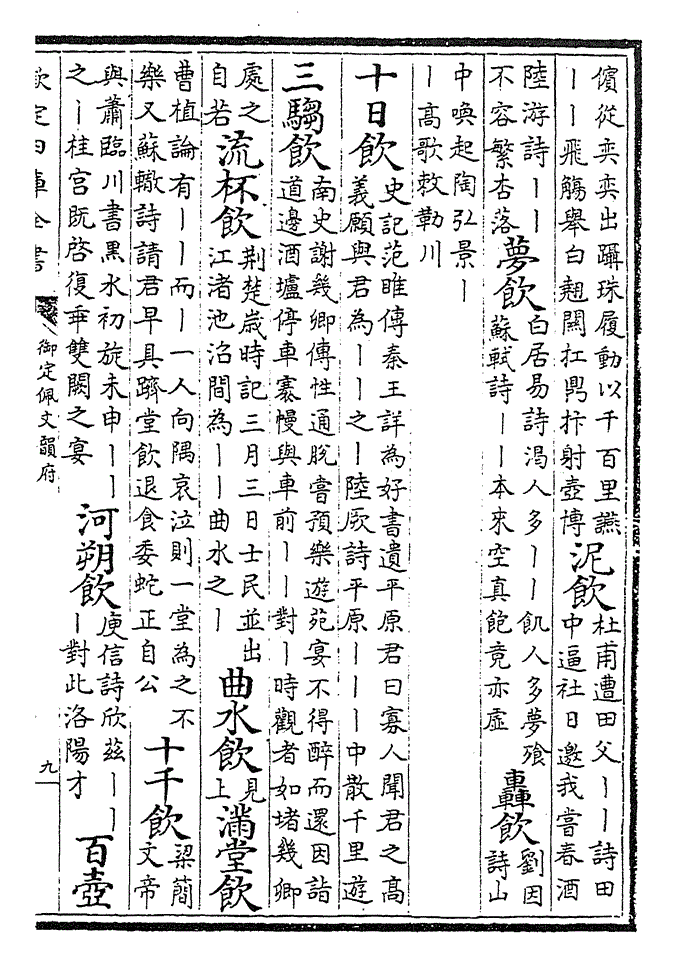 儐從奕奕出躡珠履動以千百里讌
丨丨飛觴舉白翹關扛鼎抃射壺博
泥飲
杜甫遭田父丨丨詩田
中逼社日邀我嘗春酒
陸游詩丨丨
不容繁杏落
夢飲
白居易詩渴人多丨丨飢人多夢飱
蘇軾詩丨丨本來空真飽竟亦虛
轟飲
劉因
詩山
中喚起陶弘景丨
丨高歌敕勒川
十日飲
史記范睢傳秦王詳為好書遺平原君曰寡人聞君之高
義願與君為丨丨之丨陸厥詩平原丨丨丨中散千里遊
三騶飲
南史謝幾卿傳性通脫嘗預樂遊苑宴不得醉而還因詣
道邊酒壚停車褰幔與車前丨丨對丨時觀者如堵幾卿
處之
自若
流杯飲
荆楚歲時記三月三日士民並出
江渚池沼間為丨丨曲水之丨
曲水飲
見
上
滿堂飲
曹植論有丨丨而丨一人向隅哀泣則一堂為之不
樂又蘇轍詩請君早具躋堂飲退食委蛇正自公
十千飲
梁簡
文帝
與蕭臨川書黒水初旋未申丨丨
之丨桂宫既啓復乖雙闕之宴
河朔飲
庾信詩欣兹丨丨
丨對此洛陽才
百壺
欽定四庫全書
御定佩文韻府
九